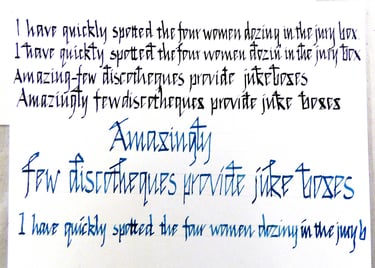 I have quickly spotted the four women dozing in the jury box
I have quickly spotted the four women dozin in the jury box
Amazing-few discotheques provide juke boxes
Amazingly few discotheques provide juke boxes
Amazingly
few discotheques provide juke boxes
I have quickly spotted the four women dozing in the jury b